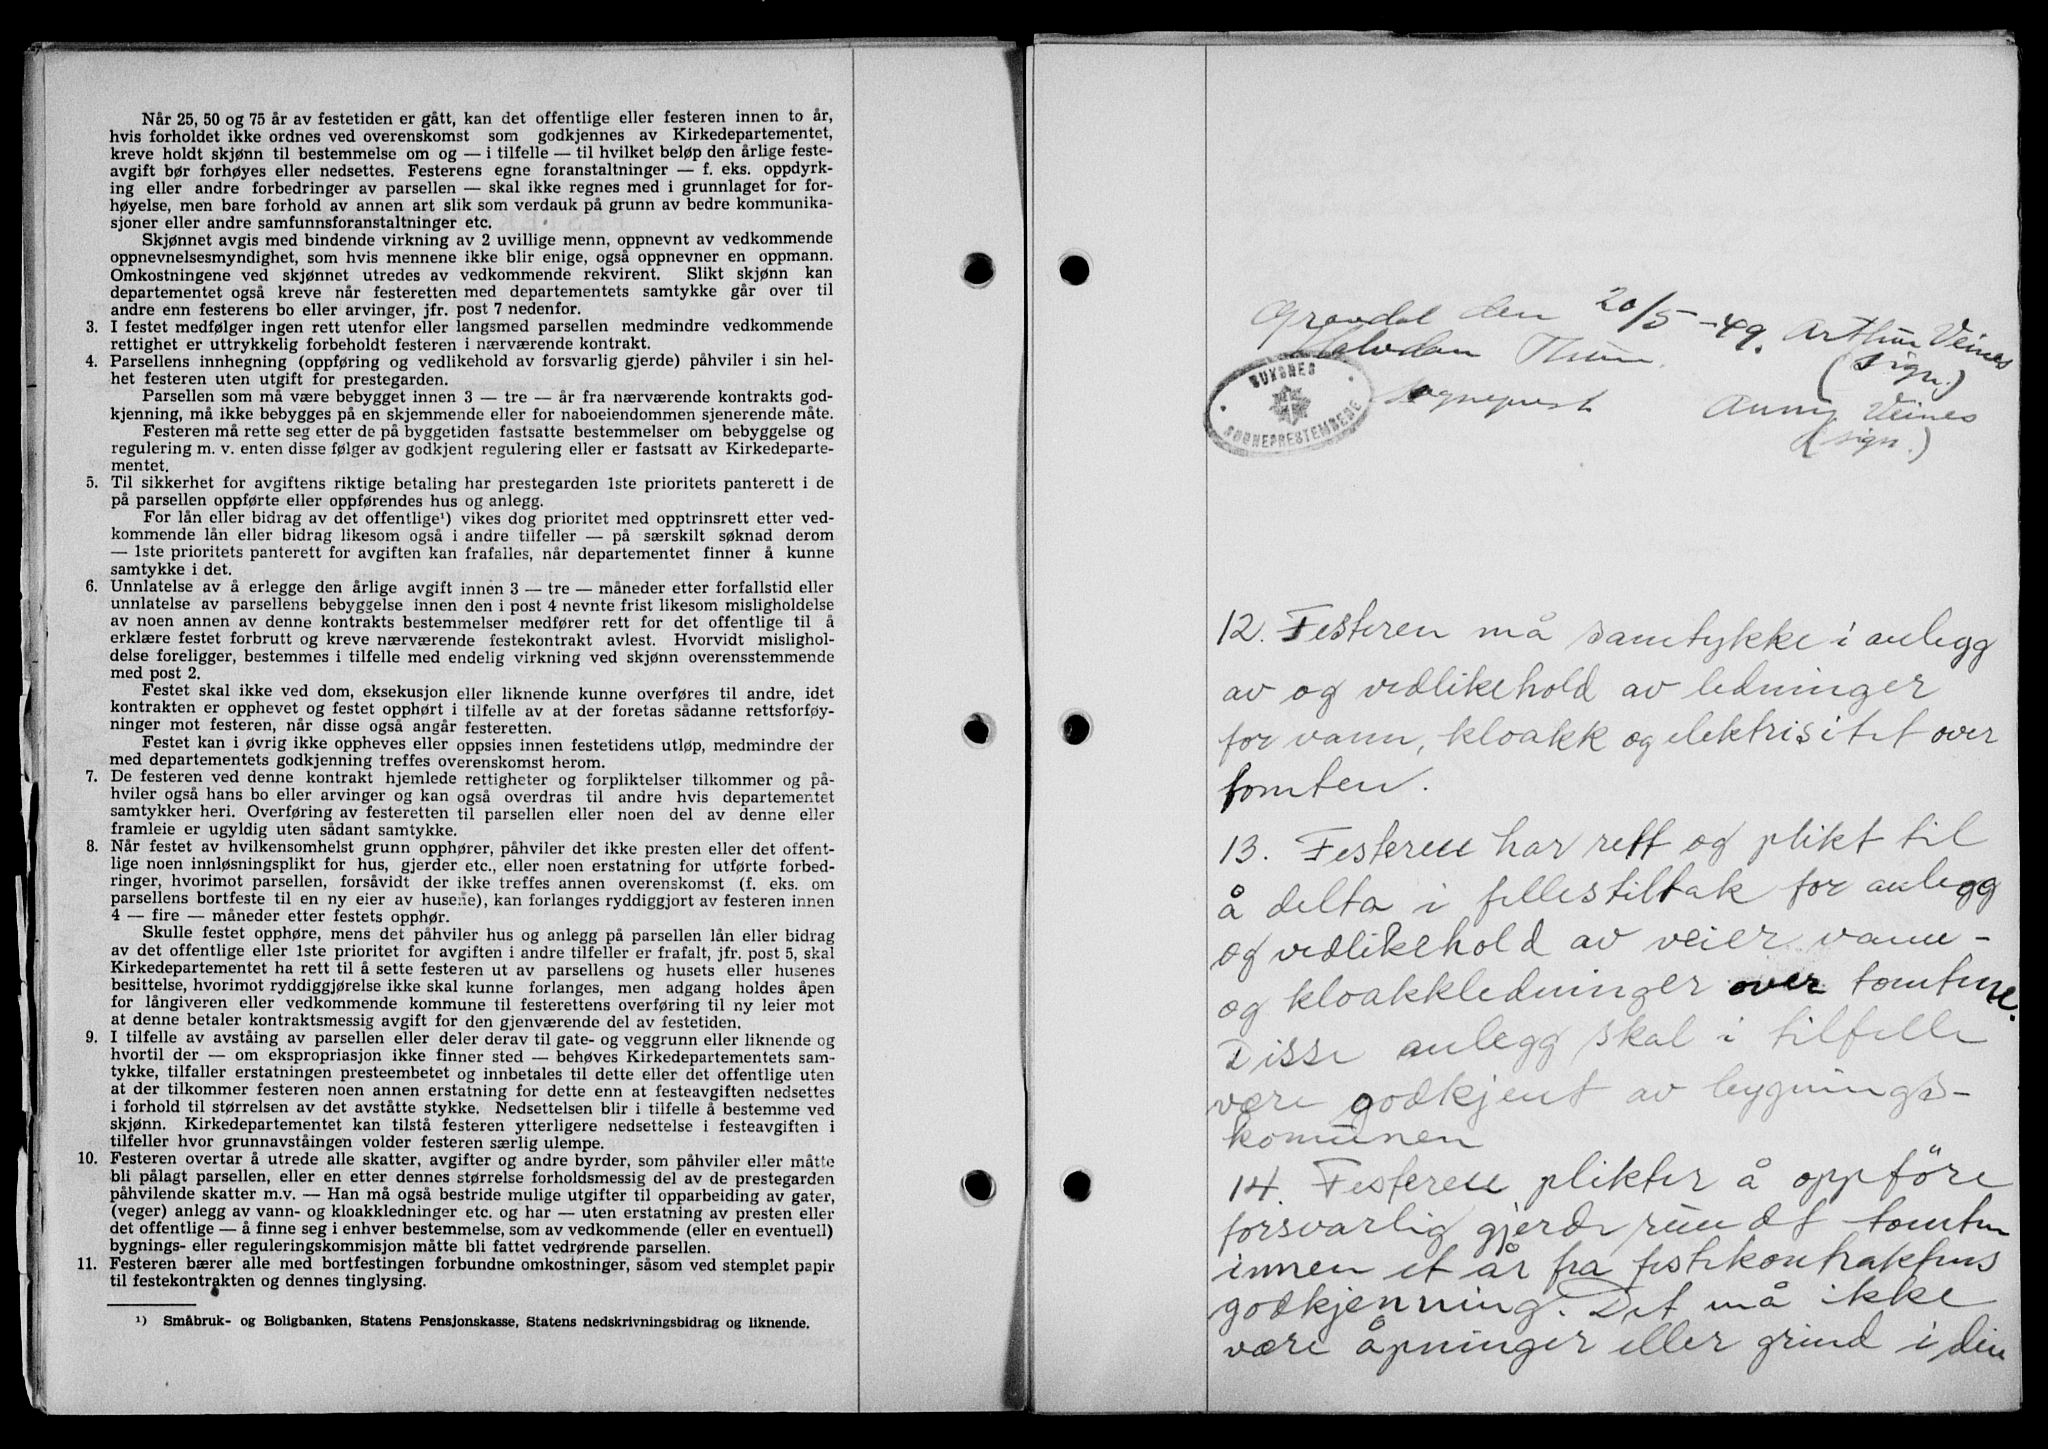 Når 25, 50 og 75 år av festetiden er gått, kan det offentlige eller festeren innen to år,
hvis forholdet ikke ordnes ved overenskomst som godkjennes av Kirkedepartementet,
kreve holdt skjønn til bestemmelse om og — i tilfelle — til hvilket beløp den årlige feste-
avgift bør forhøyes eller nedsettes. Festerens egne foranstaltninger — f. eks. oppdyrk-
ing eller andre forbedringer av parsellen — skal ikke regnes med i grunnlaget for for-
høyelse, men bare forhold av annen art slik som verdauk på grunn av bedre kommunika-
sjoner eller andre samfunnsforanstaltninger etc.
Skjønnet avgis med bindende virkning av 2 uvillige menn, oppnevnt av vedkommende
oppnevnelsesmyndighet, som hvis mennene ikke blir enige, også oppnevner en oppmann.
Omkostningene ved skjønnet utredes av vedkommende rekvirent. Slikt skjønn kan
departementet også kreve når festeretten med departementets samtykke går over til
andre enn festerens bo eller arvinger, jfr. post 7 nedenfor.
3. I festet medfølger ingen rett utenfor eller langsmed parsellen medmindre vedkommende
rettighet er uttrykkelig forbeholdt festeren i nærværende kontrakt.
4. Parsellens innhegning (oppføring og vedlikehold av forsvarlig gjerde) påhviler i sin hel-
het festeren uten utgift for prestegarden.
Parsellen som må være bebygget innen 3 — tre — år fra nærværende kontrakts god-
kjenning, må ikke bebygges på en skjemmende eller for naboeiendommen sjenerende måte.
Festeren må rette seg etter de på byggetiden fastsatte bestemmelser om bebyggelse og
regulering m. v. enten disse følger av godkjent regulering eller er fastsatt av Kirkedeparte-
mentet.
5. Til sikkerhet for avgiftens riktige betaling har prestegarden 1ste prioritets panterett i de
på parsellen oppførte eller oppførendes hus og anlegg.
For lån eller bidrag av det offentlige¹) vikes dog prioritet med opptrinsrett etter ved-
kommende lån eller bidrag likesom også i andre tilfeller — på særskilt søknad derom
— 1ste prioritets panterett for avgiften kan frafalles, når departementet finner å kunne
samtykke i det.
6. Unnlatelse av å erlegge den årlige avgift innen 3 — tre — måneder etter forfallstid eller
unnlatelse av parsellens bebyggelse innen den i post 4 nevnte frist likesom misligholdelse
av noen annen av denne kontrakts bestemmelser medfører rett for det offentlige til å
erklære festet forbrutt og kreve nærværende festekontrakt avlest. Hvorvidt mislighol-
delse foreligger, bestemmes i tilfelle med endelig virkning ved skjønn overensstemmende
med post 2.
Festet skal ikke ved dom, eksekusjon eller liknende kunne overføres til andre, idet
kontrakten er opphevet og festet opphørt i tilfelle av at der foretas sådanne rettsforføy-
ninger mot festeren, når disse også angår festeretten.
Festet kan i øvrig ikke oppheves eller oppsies innen festetidens utløp, medmindre der
med departementets godkjenning treffes overenskomst herom.
7. De festeren ved denne kontrakt hjemlede rettigheter og forpliktelser tilkommer og på-
hviler også hans bo eller arvinger og kan også overdras til andre hvis departementet
samtykker heri. Overføring av festeretten til parsellen eller noen del av denne eller
framleie er ugyldig uten sådant samtykke.
8. Når festet av hvilkensomhelst grunn opphører, påhviler det ikke presten eller det offent-
lige noen innløsningsplikt for hus, gjerder etc., eller noen erstatning for utførte forbed-
ringer, hvorimot parsellen, forsåvidt der ikke treffes annen overenskomst (f. eks. om
parsellens bortfeste til en ny eier av husene), kan forlanges ryddiggjort av festeren innen
4 — fire — måneder etter festets opphør.
Skulle festet opphøre, mens det påhviler hus og anlegg på parsellen lån eller bidrag
av det offentlige eller 1ste prioritet for avgiften i andre tilfeller er frafalt, jfr. post 5, skal
Kirkedepartementet ha rett til å sette festeren ut av parsellens og husets eller husenes
besittelse, hvorimot ryddiggjørelse ikke skal kunne forlanges, men adgang holdes åpen
for långiveren eller vedkommende kommune til festerettens overføring til ny leier mot
at denne betaler kontraktsmessig avgift for den gjenværende del av festetiden.
9. I tilfelle av avståing av parsellen eller deler derav til gate- og veggrunn eller liknende og
hvortil der — om ekspropriasjon ikke finner sted — behøves Kirkedepartementets sam-
tykke, tilfaller erstatningen presteembetet og innbetales til dette eller det offentlige uten
at der tilkommer festeren noen annen erstatning for dette enn at festeavgiften nedsettes
i forhold til størrelsen av det avståtte stykke. Nedsettelsen blir i tilfelle å bestemme ved
skjønn. Kirkedepartementet kan tilstå festeren ytterligere nedsettelse i festeavgiften i
tilfeller hvor grunnavståingen volder festeren særlig ulempe.
10. Festeren overtar å utrede alle skatter, avgifter og andre byrder, som påhviler eller måtte
bli pålagt parsellen, eller en etter dennes størrelse forholdsmessig del av de prestegarden
påhvilende skatter m.v. — Han må også bestride mulige utgifter til opparbeiding av gater,
(veger) anlegg av vann- og kloakkledninger etc. og har — uten erstatning av presten eller
det offentlige — å finne seg i enhver bestemmelse, som av vedkommende (eller en eventuell)
bygnings- eller reguleringskommisjon måtte bli fattet vedrørende parsellen.
11. Festeren bærer alle med bortfestingen forbundne omkostninger, såsom ved stemplet papir
til festekontrakten og dennes tinglysing.
¹) Småbruk- og Boligbanken, Statens Pensjonskasse, Statens nedskrivningsbidrag og liknende.
Gravdal den 20/5-49. Arthur Veines
Halvdan Thum (sign.)
sogneprest Anny Veines
(sign.)
BUKSNES
SOGNEPRESTEMBEDE
12. Festeren må samtykke i anlegg
av og vedlikehold av ledninger
for vann, kloakk og elektrisitet over
tomten.
13. Festeren har rett og plikt til
å delta i fellestiltak for anlegg
og vedlikehold av veier vann-
og kloakkledninger over tomtene.
Disse anlegg skal i tilfelle
være godkjent av bygnings-
komunen
14. Festeren plikter å oppföre
forsvarlig gjerde rundt tomten
innen et år fra festekontraktens
godkjenning. Det må ikke
være åpninger eller grind i den